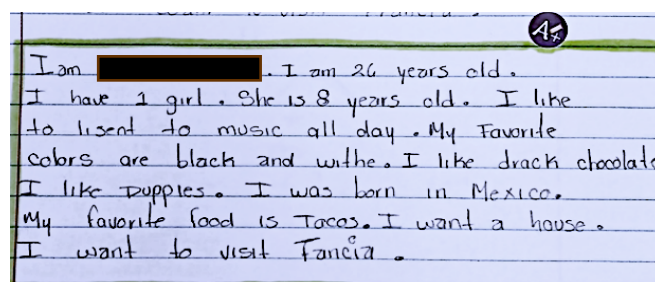 A+
I am . I am 26 years old.
I have 1 girl. She is 8 years old. I like
to lisent to music all day. My Favorite
colors are black and withe. I like drack chocolate
I like puppies. I was born in Mexico.
My favorite food is Tacos. I want a house.
I want to visit Fancia.